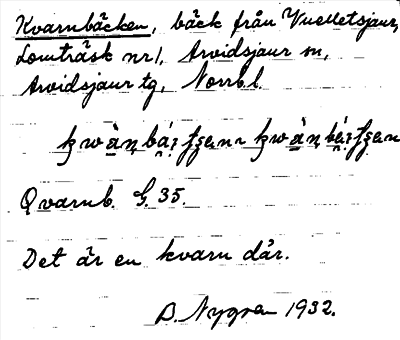 Kvarnbäcken, bäck från Vuelletsjaur,
Lomträsk nr 1, Arvidsjaur sn,
Arvidsjaur tg, Norrb. l.
Qvarnb. G. 35.
Det är en kvarn där.
B. Nygren 1932.